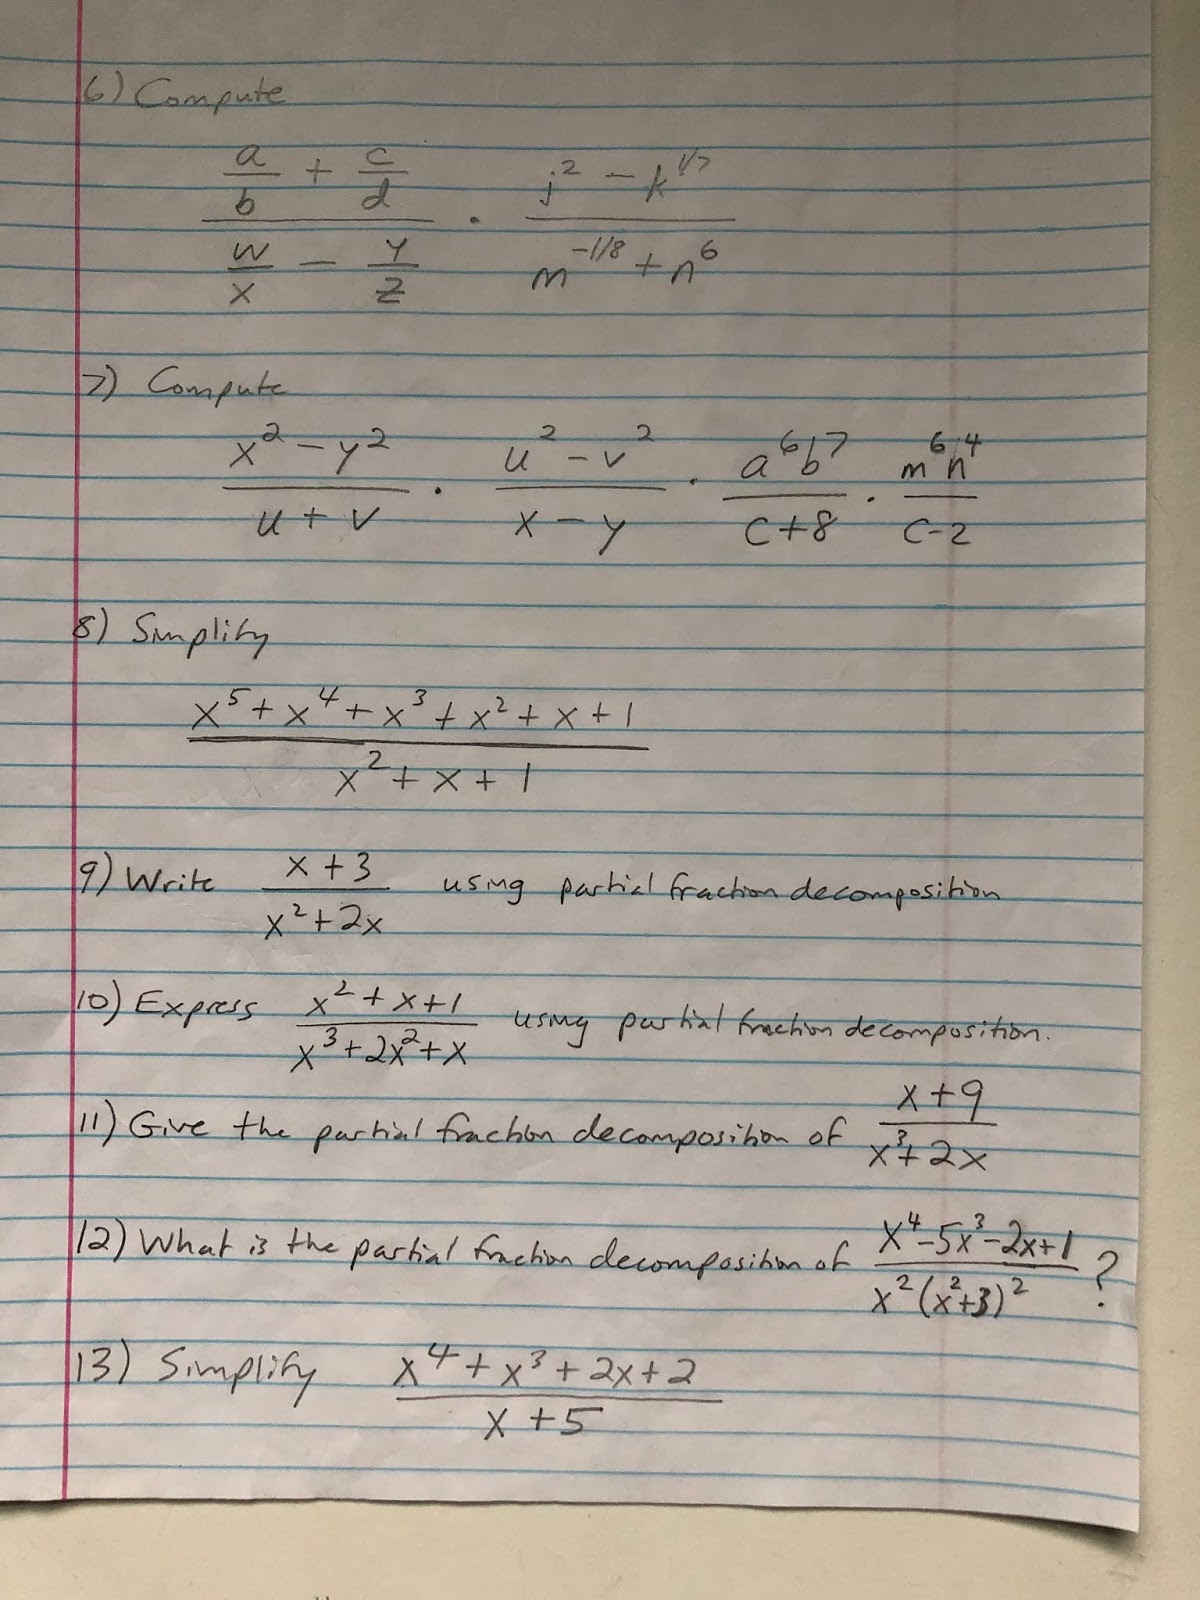 6) Compute
(a/b + c/d)/(w/x - y/z) · (j^2 - k^(1/7))/(m^(-1/8) + n^6)
7) Compute
(x^2 - y^2)/(u + v) · (u^2 - v^2)/(x - y) · (a^6b^7)/(c+8) · (m^6n^4)/(c-2)
8) Simplify
(x^5 + x^4 + x^3 + x^2 + x + 1)/(x^2 + x + 1)
9) Write (x + 3)/(x^2 + 2x) using partial fraction decomposition
10) Express (x^2 + x + 1)/(x^3 + 2x^2 + x) using partial fraction decomposition.
11) Give the partial fraction decomposition of (x + 9)/(x^3 + 2x)
12) What is the partial fraction decomposition of (x^4 - 5x^3 - 2x + 1)/(x^2(x^2+3)^2)?
13) Simplify (x^4 + x^3 + 2x + 2)/(x + 5)